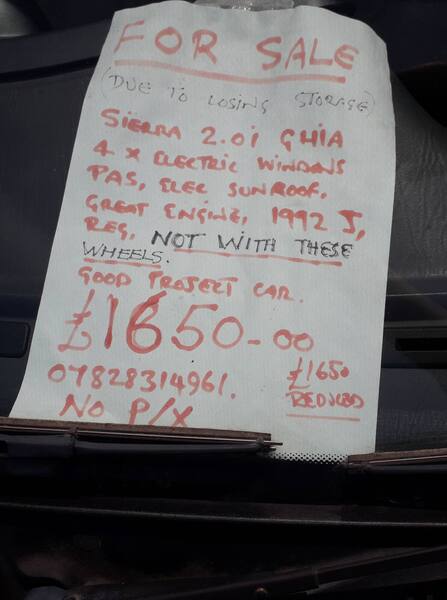 FOR SALE
(DUE TO LOSING STORAGE)
SIERRA 2.0i GHIA
4 X ELECTRIC WINDOWS
PAS, ELEC SUNROOF,
GREAT ENGINE, 1992 J,
REG, NOT WITH THESE
WHEELS.
GOOD PROJECT CAR.
£1650-00
07828314961.
NO P/X
£1650
REDUCED